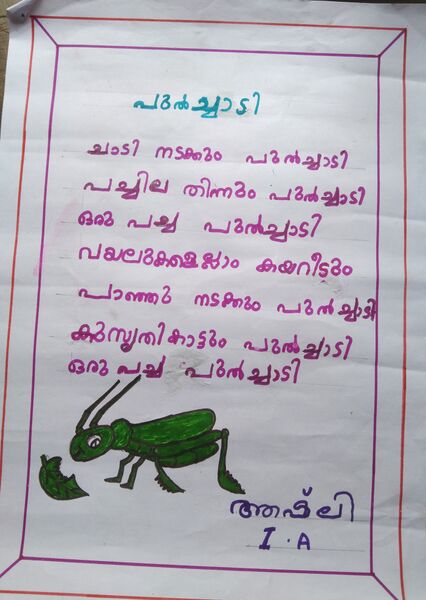 പുൽച്ചാടി
ചാടി നടക്കും പുൽച്ചാടി
പച്ചില തിന്നും പുൽച്ചാടി
ഒരു പച്ച പുൽച്ചാടി
വയലുകളെല്ലാം കയറീട്ടും
പാഞ്ഞു നടക്കും പുൽച്ചാടി
കുസൃതികാട്ടും പുൽച്ചാടി
ഒരു പച്ച പുൽച്ചാടി
അഷ്ലി
I. A